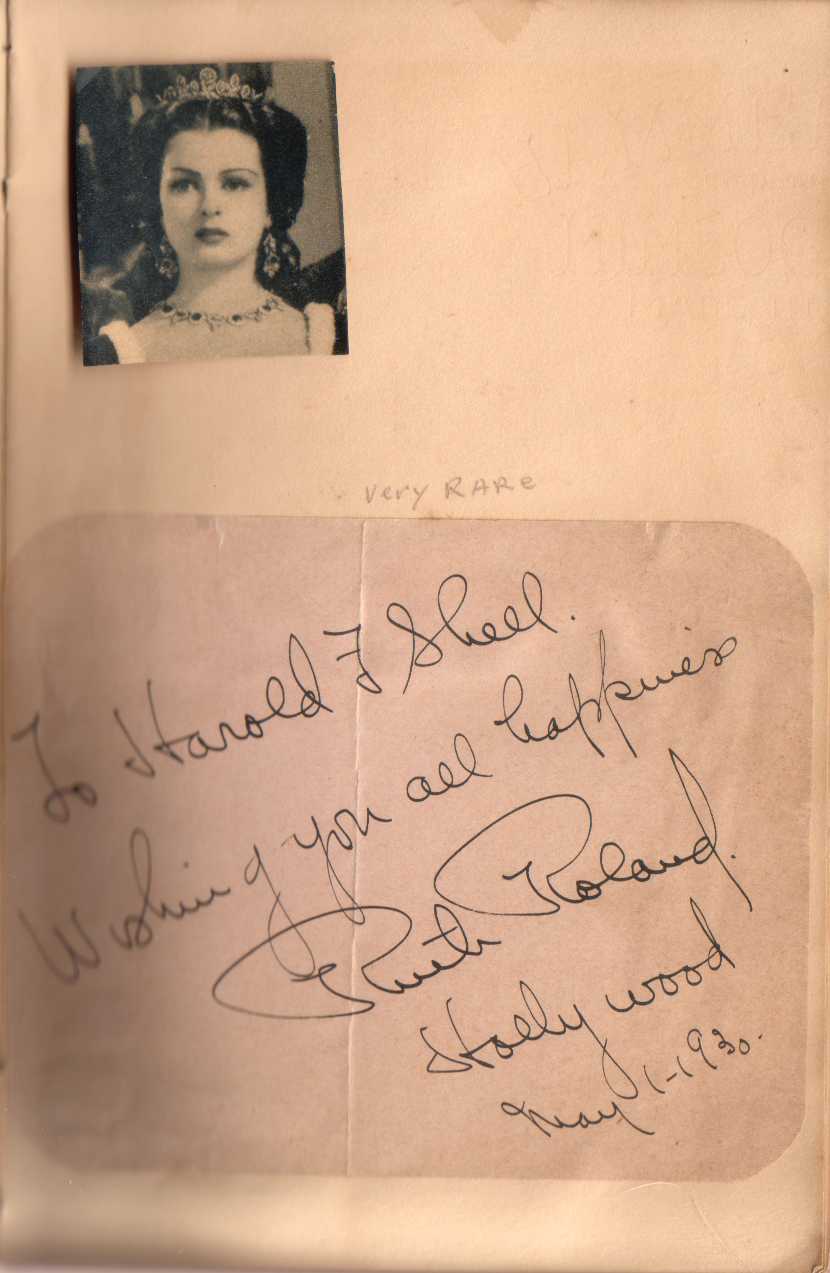 very RARe
To Harold F Shell.
Wishing you all happiness
Ruth Roland.
Hollywood
May 1-1930.